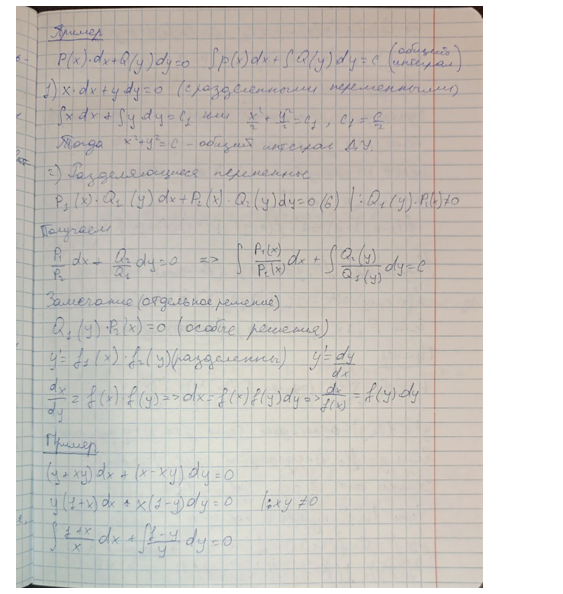 Пример
P(x)·dx+Q(y)dy=0 ∫p(x)dx+∫Q(y)dy=c (общий интеграл)
1) x·dx+ydy=0 (с разделенными переменными)
∫xdx+∫ydy=c₁ или x²/2 + y²/2 = c₁, c₁=c/2
Тогда x²+y²=c – общий интеграл ДУ.
2) Разделяющиеся переменные
P₁(x)·Q₁(y)dx+P₂(x)·Q₂(y)dy=0 (6) |:Q₁(y)·P₂(x)≠0
Получаем
P₁/P₂ dx + Q₂/Q₁ dy=0 => ∫ P₁(x)/P₂(x) dx + ∫ Q₂(y)/Q₁(y) dy=c
Замечание (отдельное решение)
Q₁(y)·P₂(x)=0 (особые решения)
y'=f₁(x)·f₂(y) (разделенны) y'=dy/dx
dx/dy = f(x)·f(y)=>dx=f(x)f(y)dy=>dx/f(x) = f(y)dy
Пример
(y+xy)dx+(x-xy)dy=0
y(1+x)dx+x(1-y)dy=0 |:xy≠0
∫ 1+x/x dx + ∫ 1-y/y dy=0